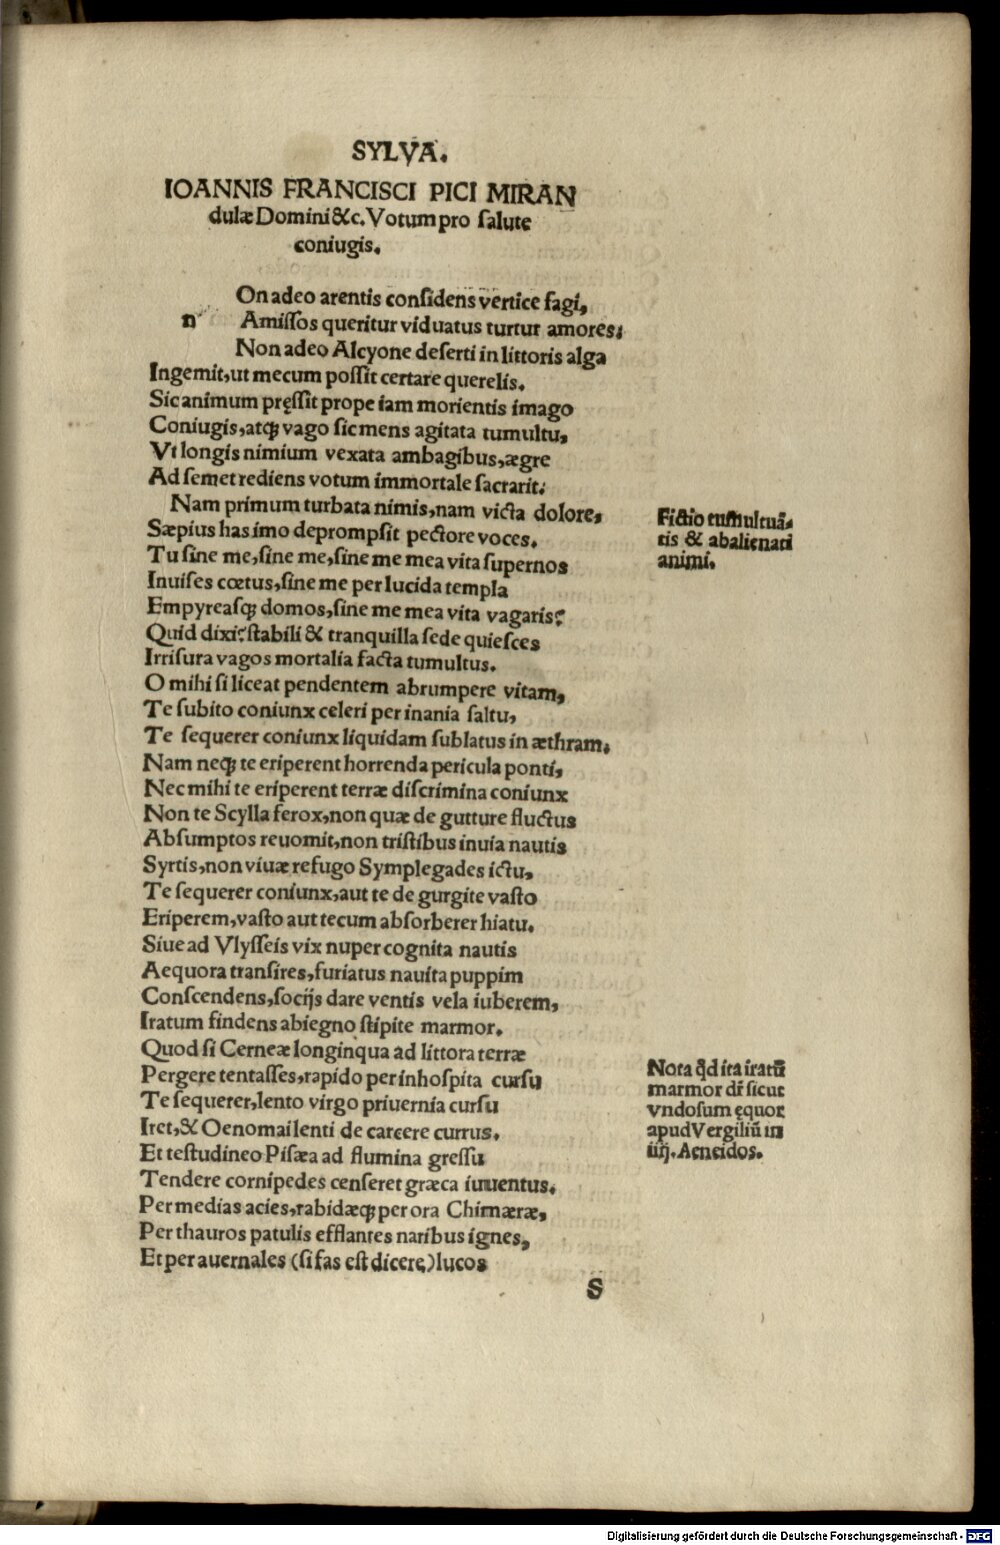 SYLVA.
IOANNIS FRANCISCI PICI MIRAN
dulæ Domini &c. Votum pro ſalute
coniugis.
On adeo arentis conſidens vertice fagi,
n Amiſſos queritur viduatus turtur amores:
Non adeo Alcyone deſerti in littoris alga
Ingemit, ut mecum poſſit certare querelis.
Sic animum pręſſit prope iam morientis imago
Coniugis, atqꝫ vago ſic mens agitata tumultu,
Vt longis nimium vexata ambagibus, ægre
Ad ſemet rediens votum immortale ſacrarit:
Nam primum turbata nimis, nam victa dolore,
Sæpius has imo deprompſit pectore voces.
Tu ſine me, ſine me, ſine me mea vita ſupernos
Inuiſes cœtus, ſine me per lucida templa
Empyreaſqꝫ domos, ſine me mea vita vagaris?
Quid dixi? ſtabili & tranquilla ſede quieſces
Irriſura vagos mortalia facta tumultus.
O mihi ſi liceat pendentem abrumpere vitam,
Te ſubito coniunx celeri per inania ſaltu,
Te ſequerer coniunx liquidam ſublatus in æthram.
Nam neqꝫ te eriperent horrenda pericula ponti,
Nec mihi te eriperent terræ diſcrimina coniunx
Non te Scylla ferox, non quæ de gutture fluctus
Abſumptos reuomit, non triſtibus inuia nautis
Syrtis, non viuæ refugo Symplegades ictu,
Te ſequerer coniunx, aut te de gurgite vaſto
Eriperem, vaſto aut tecum abſorberer hiatu.
Siue ad Vlyſſeis vix nuper cognita nautis
Aequora tranſires, furiatus nauita puppim
Conſcendens, ſocijs dare ventis vela iuberem,
Iratum findens abiegno ſtipite marmor.
Quod ſi Cerneæ longinqua ad littora terræ
Pergere tentaſſes, rapido per inhoſpita curſu
Te ſequerer, lento virgo priuernia curſu
Iret, & Oenomai lenti de carcere currus.
Et teſtudineo Piſæa ad flumina greſſu
Tendere cornipedes cenſeret græca iuuentus.
Per medias acies, rabidæqꝫ per ora Chimæræ,
Per thauros patulis efflantes naribus ignes,
Et per auernales (ſi fas eſt dicere) lucos
S
Fictio tumultuã-
tis & abalienati
animi.
Nota qd̃ ita iratũ
marmor dr̃ ſicut
vndoſum ęquor
apud Vergiliũ in
iiij. Aeneidos.
Digitalisierung gefördert durch die Deutsche Forschungsgemeinschaft - DFG